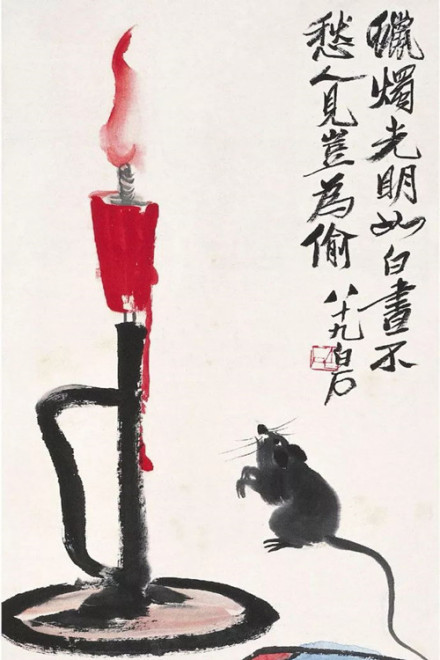 蠟燭光明如白晝不
愁人見豈為偷
八十九白石